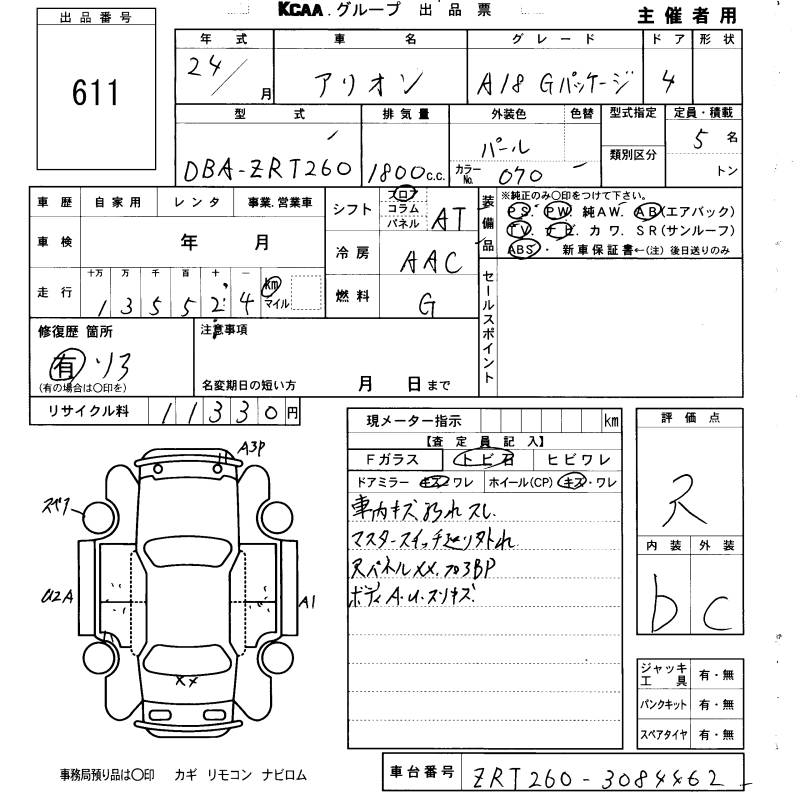 KCAA.グループ 出品票 主催者用
出品番号
611
年式 車名 グレード ドア 形状
24/ 月 アリオン A18 Gパッケージ 4
型式 排気量 外装色 色替 型式指定 定員・積載
類別区分
DBA-ZRT260 1800c.c. パール カラーNo. 070 5名 トン
車歴 自家用 レンタ 事業.営業車
車検 年 月
走行 十万 万 千 百 十 一 km マイル
1 3 5 5 2 4
シフト フロア コラム パネル AT
冷房 AAC
燃料 G
装備品 ※純正のみ〇印をつけて下さい。
PS. PW. 純AW. AB(エアバック)
TV. ナビ. カワ. SR(サンルーフ)
ABS・ 新車保証書←(注) 後日送りのみ
セールスポイント
修復歴 箇所
有
(有の場合は〇印を)
注意事項
名変期日の短い方 月 日まで
リサイクル料 11330円
現メーター指示 km
【査定員記入】
Fガラス トビ石 ヒビワレ
ドアミラー キズ・ワレ ホイール(CP) キズ・ワレ
車内キズ汚れスレ
マスタースイッチ
RパネルXX.
ボディA.U.スリキズ
評価点
R
内装 外装
D C
A3P
U2A
A1
XX
ジャッキ工具 有・無
パンクキット 有・無
スペアタイヤ 有・無
事務局預り品は〇印 カギ リモコン ナビロム
車台番号 ZRT260-3084462